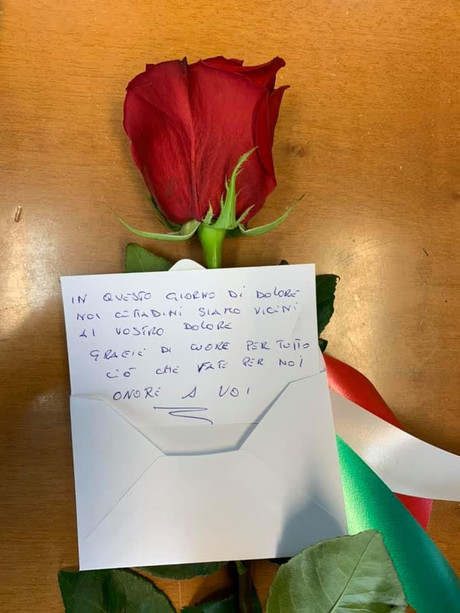 IN QUESTO GIORNO DI DOLORE
NOI CITTADINI SIAMO VICINI
AL VOSTRO DOLORE
GRAZIE DI CUORE PER TUTTO
CIÒ CHE FATE PER NOI
ONORE A VOI